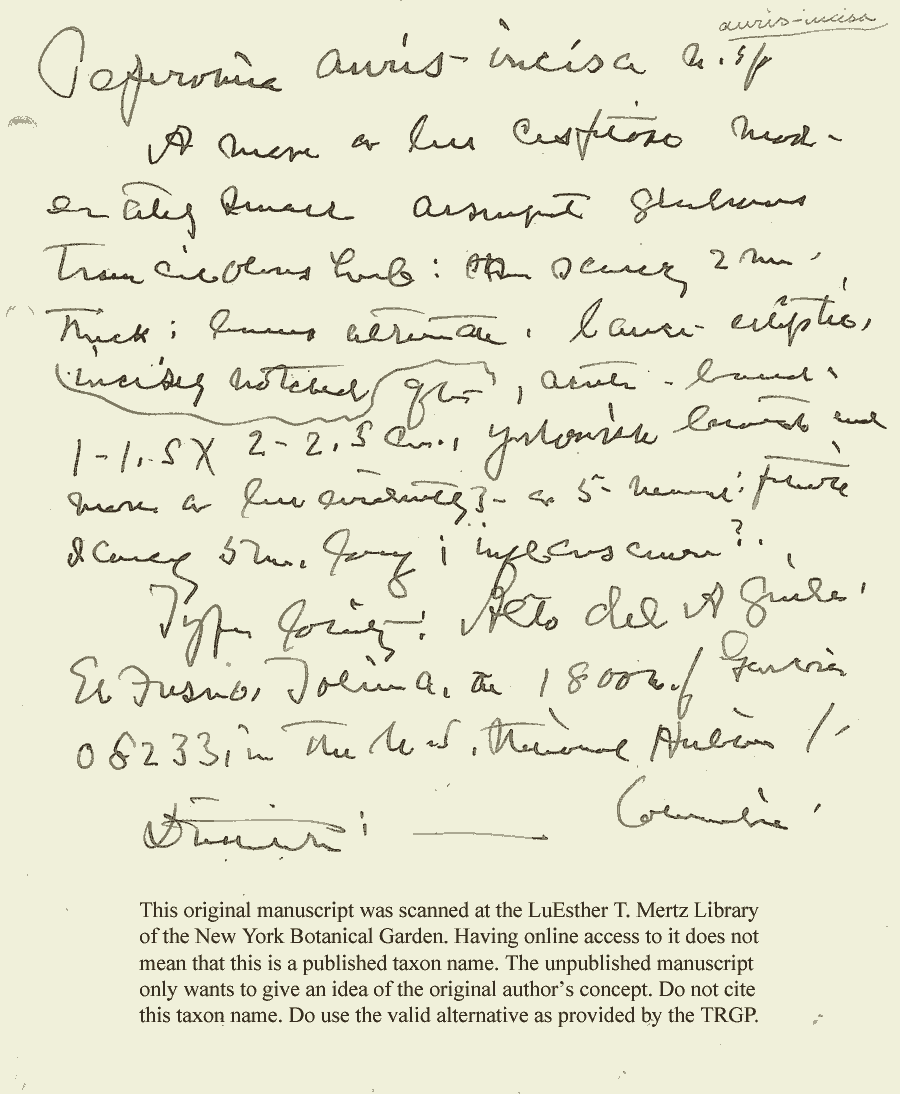 auris-incisa
Peperomia auris-incisa n. sp
A more or less cespitose mod-
erately small assurgent glabrous
truncicolous herb: stem scarcely 2 mm.
thick; leaves alternate, lance-elliptic,
incisely notched, acute-based,
1-1.5 X 2-2.5 cm.,
more or less evidently 3- or 5- nerved; petiole
scarcely 5 mm. long; inflorescence ?.
Type locality: Alto del Aguila,
El Fresno, Tolima, at 1800 m. / Garcia
08233, in the U.S. National Herbarium /-
Columbia
This original manuscript was scanned at the LuEsther T. Mertz Library
of the New York Botanical Garden. Having online access to it does not
mean that this is a published taxon name. The unpublished manuscript
only wants to give an idea of the original author's concept. Do not cite
this taxon name. Do use the valid alternative as provided by the TRGP.